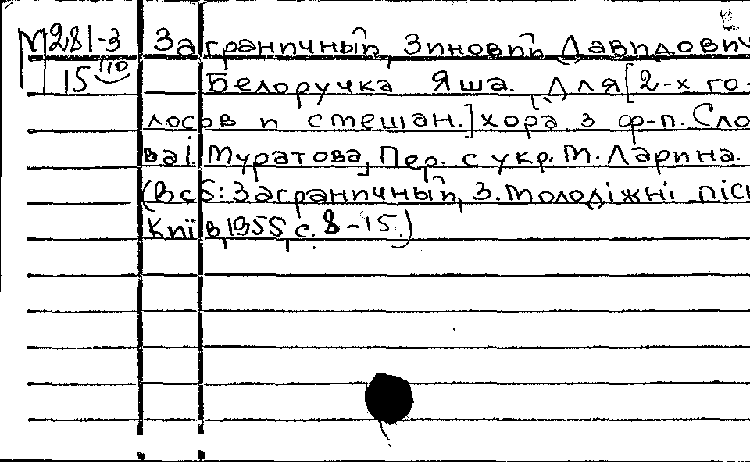 М281-3 Заграничный, Зиновий Давидович
15 Белоручка Яша. Для [2-х го
лосов и смешан.] хора з ф-п. Сло
ва І. Муратова, Пер. с укр. М. Ларина.
(В сб: Заграничный, З. Молодіжні піс
Київ, 1955, с. 8-15.)